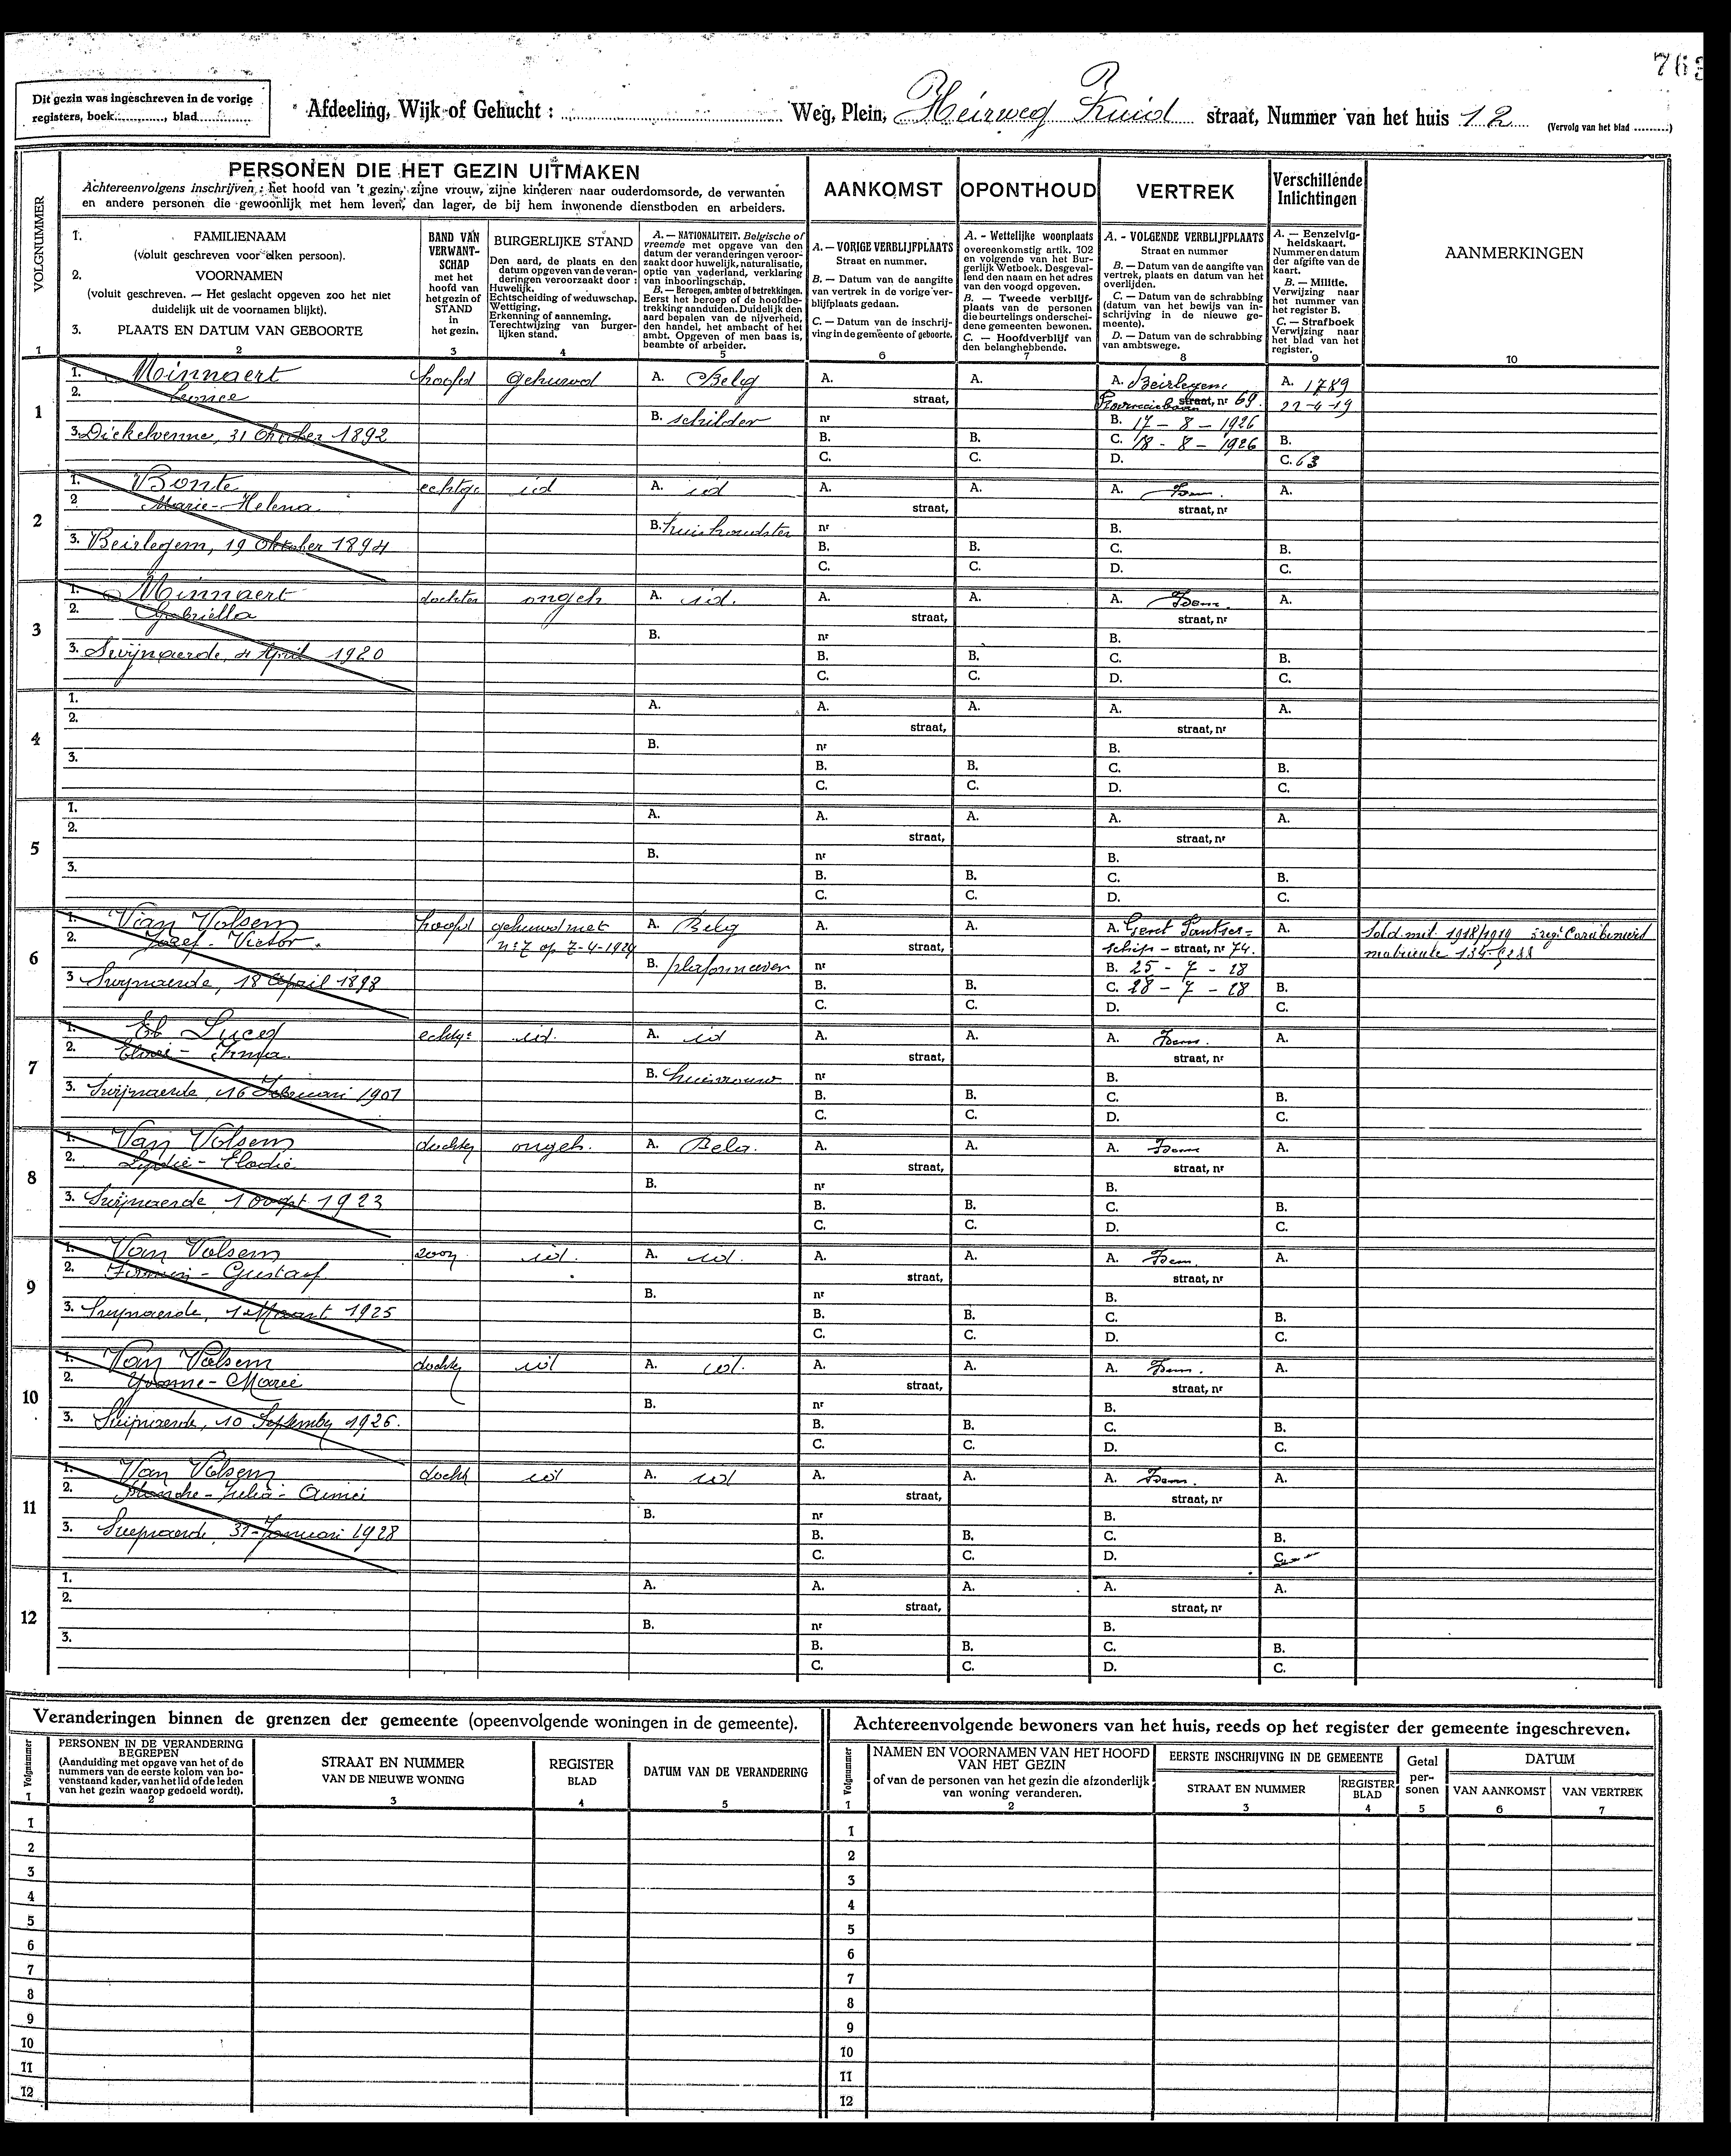 763
Dit gezin was ingeschreven in de vorige
registers, boek............, blad............
Afdeeling, Wijk of Gehucht : ............ Weg, Plein, Heirweg Zuid straat, Nummer van het huis 12 (Vervolg van het blad .........)
VOLGNUMMER
PERSONEN DIE HET GEZIN UITMAKEN
Achtereenvolgens inschrijven : het hoofd van 't gezin, zijne vrouw, zijne kinderen naar ouderdomsorde, de verwanten
en andere personen die gewoonlijk met hem leven, dan lager, de bij hem inwonende dienstboden en arbeiders.
AANKOMST
OPONTHOUD
VERTREK
Verschillende
Inlichtingen
AANMERKINGEN
1. FAMILIENAAM
(voluit geschreven voor elken persoon).
2. VOORNAMEN
(voluit geschreven. — Het geslacht opgeven zoo het niet
duidelijk uit de voornamen blijkt).
3. PLAATS EN DATUM VAN GEBOORTE
BAND VAN
VERWANT-
SCHAP
met het
hoofd van
het gezin of
STAND
in
het gezin.
BURGERLIJKE STAND
Den aard, de plaats en den
datum opgeven van de veran-
deringen veroorzaakt door :
Huwelijk.
Echtscheiding of weduwschap.
Wettiging.
Erkenning of aanneming.
Terechtwijzing van burger-
lijken stand.
A. — NATIONALITEIT. Belgische of
vreemde met opgave van den
datum der veranderingen veroor-
zaakt door huwelijk, naturalisatie,
optie van vaderland, verklaring
van inboorlingschap.
B. — Beroepen, ambten of betrekkingen.
Eerst het beroep of de hoofdbe-
trekking aanduiden. Duidelijk den
aard bepalen van de nijverheid,
den handel, het ambacht of het
ambt. Opgeven of men baas is,
beambte of arbeider.
A. — VORIGE VERBLIJFPLAATS
Straat en nummer.
B. — Datum van de aangifte
van vertrek in de vorige ver-
blijfplaats gedaan.
C. — Datum van de inschrij-
ving in de gemeente of geboorte.
A. - Wettelijke woonplaats
overeenkomstig artik. 102
en volgende van het Bur-
gerlijk Wetboek. Desgeval-
lend den naam en het adres
van den voogd opgeven.
B. — Tweede verblijf-
plaats van de personen
die beurtelings onderschei-
dene gemeenten bewonen.
C. — Hoofdverblijf van
den belanghebbende.
A. - VOLGENDE VERBLIJFPLAATS
Straat en nummer
B. — Datum van de aangifte van
vertrek, plaats en datum van het
overlijden.
C. — Datum van de schrabbing
(datum van het bewijs van in-
schrijving in de nieuwe ge-
meente).
D. — Datum van de schrabbing
van ambtswege.
A. — Eenzelvig-
heidskaart.
Nummer en datum
der afgifte van de
kaart.
B. — Militie.
Verwijzing naar
het nummer van
het register B.
C. — Strafboek
Verwijzing naar
het blad van het
register.
1 2 3 4 5 6 7 8 9 10
1
1. Minnaert hoofd gehuwd A. Belg A. A. A. Beirlegem A. 1789
2. Leonce straat, Provinciebaan straat, nr 69. 22-4-19
B. schilder nr B. 17 - 8 - 1926
3. Dickelvenne, 31 Oktober 1892 B. B. C. 18 - 8 - 1926 B.
C. C. D. C. 63
2
1. Bonte echtge id A. id A. A. A. Idem. A.
2 Marie-Helena straat, straat, nr
B. huishoudster nr B.
3. Beirlegem, 19 Oktober 1894 B. B. C. B.
C. C. D. C.
3
1. Minnaert dochter ongeh A. id. A. A. A. Idem. A.
2. Gabriella straat, straat, nr
B. nr B.
3. Swijnaerde, 4 April 1920 B. B. C. B.
C. C. D. C.
4
1. A. A. A. A. A.
2. straat, straat, nr
B. nr B.
3. B. B. C. B.
C. C. D. C.
5
1. A. A. A. A. A.
2. straat, straat, nr
B. nr B.
3. B. B. C. B.
C. C. D. C.
6
1. Van Volsem hoofd gehuwd met A. Belg A. A. A. Gent Pantser= A. Sold. mil. 1918/1919
2. Jozef-Victor. nr 7 op 7-4-1924 straat, schip - straat, nr 74. matricule
B. plafonneerder nr B. 25 - 7 - 28
3 Swynaerde, 18 April 1898 B. B. C. 28 - 7 - 28 B.
C. C. D. C.
7
1. echtg: id. A. id A. A. A. Idem. A.
2. Irma. straat, straat, nr
B. huisvrouw nr B.
3. Swijnaerde, 16 Februari 1901 B. B. C. B.
C. C. D. C.
8
1. Van Volsem dochter ongeh. A. Belg. A. A. A. Idem A.
2. Lydie-Elodie straat, straat, nr
B. nr B.
3. Swijnaerde, 1 oogst 1923 B. B. C. B.
C. C. D. C.
9
1. Van Volsem zoon id. A. id. A. A. A. Idem. A.
2. Firmin-Gustaaf straat, straat, nr
B. nr B.
3. Swynaerde, 1 Maart 1925 B. B. C. B.
C. C. D. C.
10
1. Van Volsem dochter id A. id. A. A. A. Idem. A.
2. Yvonne-Marie straat, straat, nr
B. nr B.
3. Swijnaerde, 10 September 1926. B. B. C. B.
C. C. D. C.
11
1. Van Volsem docht id A. id A. A. A. Idem. A.
2. Blanche-Julia-Aimei straat, straat, nr
B. nr B.
3. Swynaerde, 31-Januari 1928 B. B. C. B.
C. C. D. C.
12
1. A. A. A. A. A.
2. straat, straat, nr
B. nr B.
3. B. B. C. B.
C. C. D. C.
Veranderingen binnen de grenzen der gemeente (opeenvolgende woningen in de gemeente).
Volgnummer
PERSONEN IN DE VERANDERING
BEGREPEN
(Aanduiding met opgave van het of de
nummers van de eerste kolom van bo-
venstaand kader, van het lid of de leden
van het gezin waarop gedoeld wordt).
STRAAT EN NUMMER
VAN DE NIEUWE WONING
REGISTER
BLAD
DATUM VAN DE VERANDERING
1 2 3 4 5
1
2
3
4
5
6
7
8
9
10
11
12
Achtereenvolgende bewoners van het huis, reeds op het register der gemeente ingeschreven.
Volgnummer
NAMEN EN VOORNAMEN VAN HET HOOFD
VAN HET GEZIN
of van de personen van het gezin die afzonderlijk
van woning veranderen.
EERSTE INSCHRIJVING IN DE GEMEENTE
STRAAT EN NUMMER
REGISTER
BLAD
Getal
per-
sonen
DATUM
VAN AANKOMST
VAN VERTREK
1 2 3 4 5 6 7
1
2
3
4
5
6
7
8
9
10
11
12